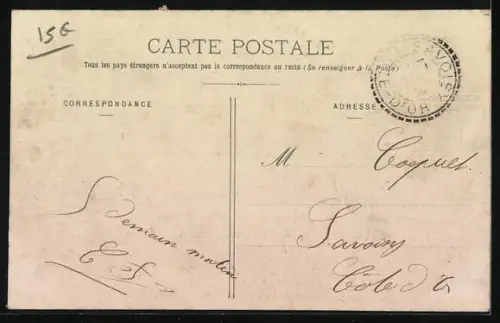 15€
CARTE POSTALE
Tous les pays étrangers n'acceptent pas la correspondance au recto (Se renseigner à la Poste)
CORRESPONDANCE
ADRESSE
SAVOISY
CÔTE-D'OR
M Coquet
Savoisy
Côte d'Or
demain matin